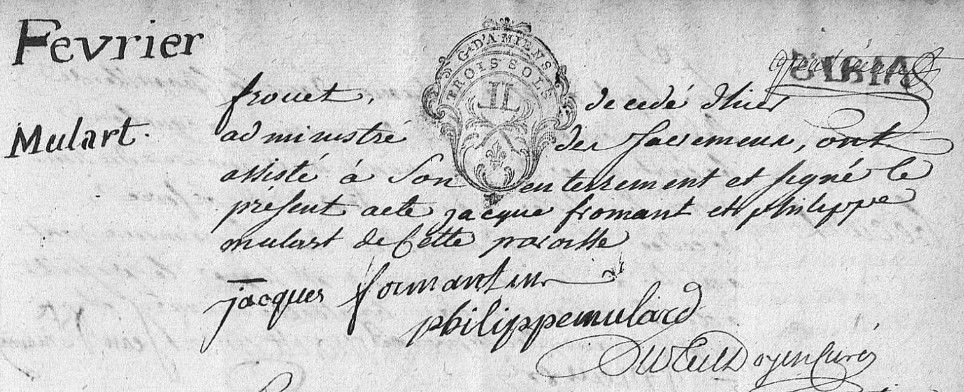 Fevrier
Mulart.
G. D'AMIENS
TROIS SOLS
frouet, decedé d'hier
administré des sacremens, ont
assisté à son enterrement et signé le
présent acte jacque fromant et philippe
mulart de cette paroisse
jacques fromantin
philippemulard
Doyen Curé